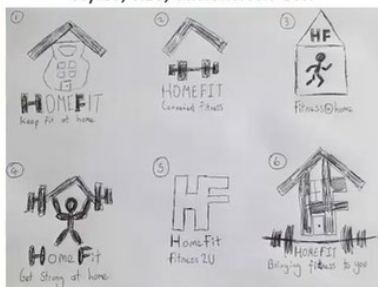 ①
②
③
HF
HOMEFIT
Keep fit at home
HOMEFIT
Convenient fitness
Fitness@home
④
⑤
⑥
HF
HomeFit
Get Strong at home
HomeFit
Fitness 2U
HOMEFIT
Bringing fitness to you